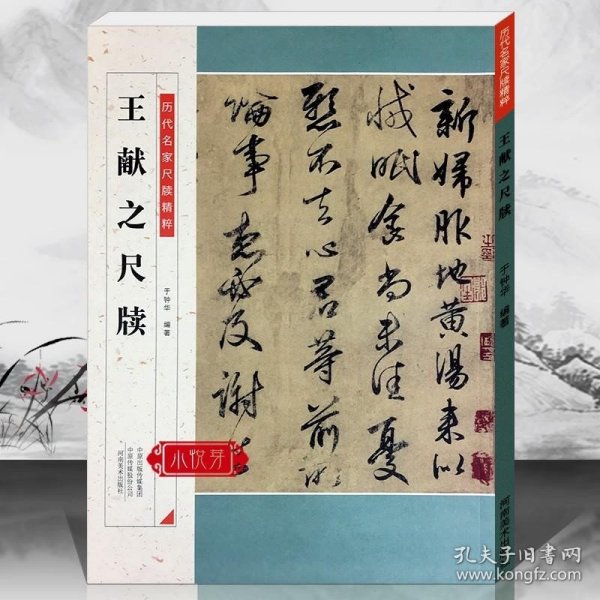 历代名家尺牍精粹
王献之尺牍
于钟华 编著
中原出版传媒集团
中原传媒股份公司
河南美术出版社
新婦服地黄湯来似
减眠食尚未佳憂
懸不去心君等前所
論事想必及謝
小悦芽
历代名家尺牍精粹
王献之尺牍
于钟华 编著
河南美术出
孔夫子旧书网
www.kongfz.com